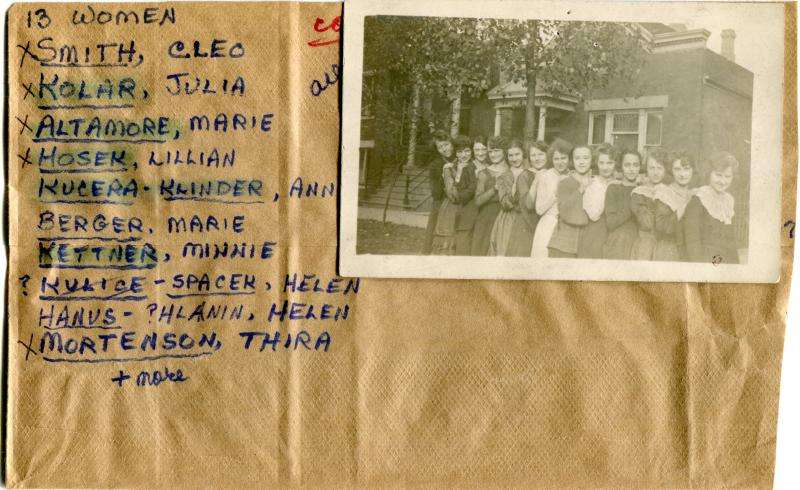 13 WOMEN
X SMITH, CLEO
X KOLAR, JULIA
X ALTAMORE, MARIE
X HOSEK, LILLIAN
KUCERA-KLINDER, ANN
BERGER, MARIE
KETTNER, MINNIE
? KULICE-SPACEK, HELEN
HANUS-PHLANIN, HELEN
X MORTENSON, THIRA
+ more
?